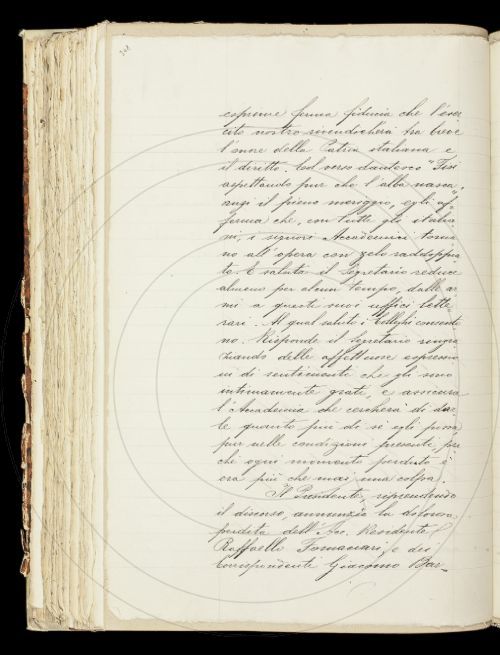 esprime ferma fiducia che l'eser
cito nostro rivendicherà tra breve
l'onore della Patria italiana e
il diritto. Col verso dantesco "Fiso
aspettando pur che l'alba nasca",
anzi il pieno meriggio, egli af
ferma che, con tutti gli italia
ni, i signori Accademici torna
no all'opera con zelo raddoppia
to. E saluta il Segretario reduce
almeno per alcun tempo, dalle ar
mi a questi suoi uffici lette
rari. Al qual saluto i Colleghi consento
no. Risponde il Segretario ringra
ziando delle affettuose espressio
ni di sentimenti che gli sono
intimamente grati, e assicura
l'Accademia che cercherà di dar
le quanto più di sé egli possa
pur nelle condizioni presenti, per
chè ogni momento perduto è
ora più che mai una colpa.
Il Presidente, riprendendo
il discorso, annunzia la dolorosa
perdita dell'Acc. Residente
Raffaello Fornaciari, e dei
Corrispondente Giacomo Bar-